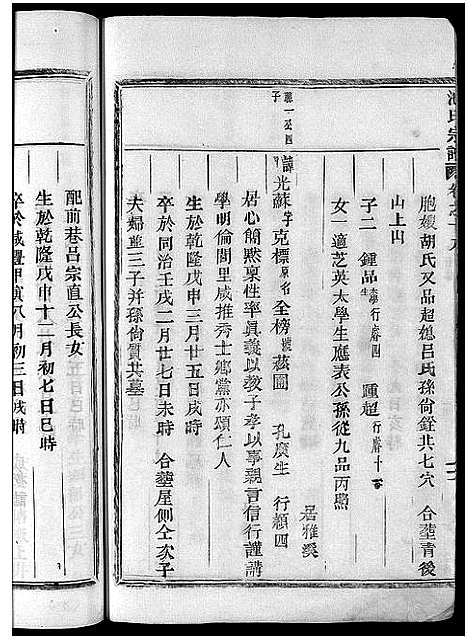 氏宗譜 卷之十九
胞嫂胡氏又品超媳呂氏孫尙鋒共七穴 合塟青後
山上山
子二 鍾品 行睿四 鍾超 行睿十
女一適芝英太學生應表公孫從九品丙照
居雅溪
派一丞四子
諱光蘇字克標原名全榜號菘圃 孔廣生 行穎四
居心簡默稟性率眞義以敎子孝以事親言信行謹講
學明倫閭里咸推秀士鄉黨亦頌仁人
生於乾隆戊申三月廿五日戌時
卒於同治壬戌二月廿七日未時 合塟屋側仝次子
夫婦並三子并孫尙質共墓
配前巷呂宗直公長女
生於乾隆戊申十二月初七日巳時
卒於咸豐甲寅八月初三日戌時